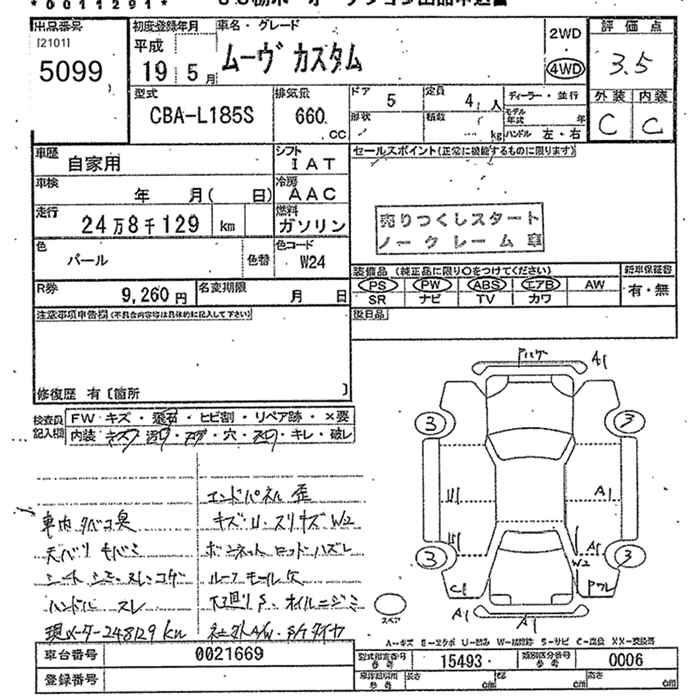 *0011291*
出品番号
[2101]
5099
初度登録年月
平成
19 5月
車名・グレード
ムーヴ カスタム
2WD
4WD
評価点
3.5
外装 内装
C C
型式
CBA-L185S
排気量
660 cc
ドア 5
定員 4人
形状
積数 kg
ディーラー・並行
モデル年式 年
ハンドル 左・右
車歴 自家用
シフト IAT
車検 年 月( 日)
冷房 AAC
走行 24万8千129 km
燃料 ガソリン
色 パール
色替
色コード W24
R券 9,260円
名変期限 月 日
セールスポイント(正常に機能するものに限ります)
売りつくしスタート
ノークレーム車
装備品 (純正品に限り○をつけてください)
新車保証書
PS PW ABS エアB AW
有・無
SR ナビ TV カワ
後日品
注意事項申告欄(不具合内容等は具体的に記入して下さい)
修復歴 有 [箇所 ]
検査員記入欄
FW キズ・飛石・ヒビ割・リペア跡・×要
内装 キズ・汚れ・コゲ・穴・スレ・キレ・破レ
車内タバコ臭
天バリ
シート シミ・スレ・コゲ
ハンドル スレ
現メーター248129km
エンドパネル 歪
キズ・U・スリキズ W2
ボンネットロッドハズレ
ルーフモール欠
下廻りS・オイルニジミ
社外A/W・S/Tタイヤ
A1
3 3
A1
A1
W2
3 3
C1
A1 A1
スペア
A-キズ E-エクボ U-凹み W-補修跡 S-サビ C-腐蝕 XX-交換済
車台番号 0021669
登録番号
型式指定番号 参考 15493
類別区分番号 参考 0006
長さ cm
幅 cm
高さ cm